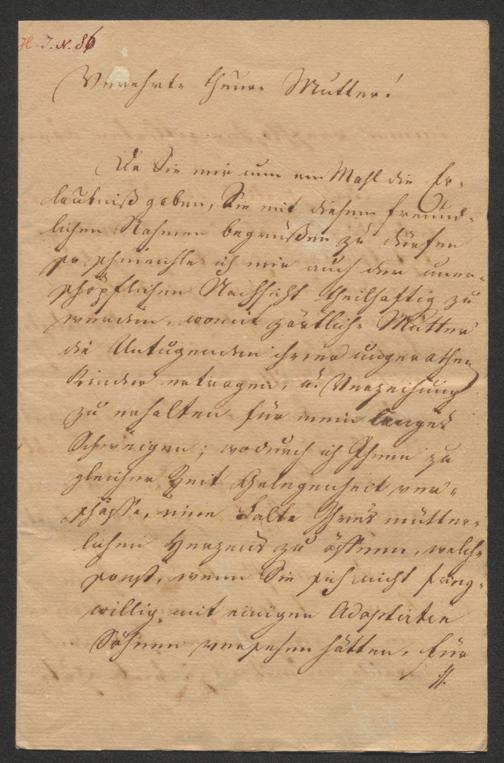 H. I. N. 86
Verehrte theure Mutter!
Da Sie mir nun ein Mahl die Er-
laubniß geben, Sie mit diesem freund-
lichen Nahmen begrüßen zu dürfen
so schmeichle ich mir auch der uner-
schöpflichen Nachsicht theilhaftig zu
werden, womit zärtliche Mütter
die Untugenden ihrer ungerathen
Kinder ertragen, u. Verzeihung
zu erhalten für mein langes
Schweigen; wodurch ich Ihnen zu
gleicher Zeit Gelegenheit ver-
schaffe, eine Falte Ihres mütter-
lichen Herzens zu öffnen, welche
sonst, wenn Sie sich nicht
willig mit einigen Adoptirten
Söhnen versehen hätten, für